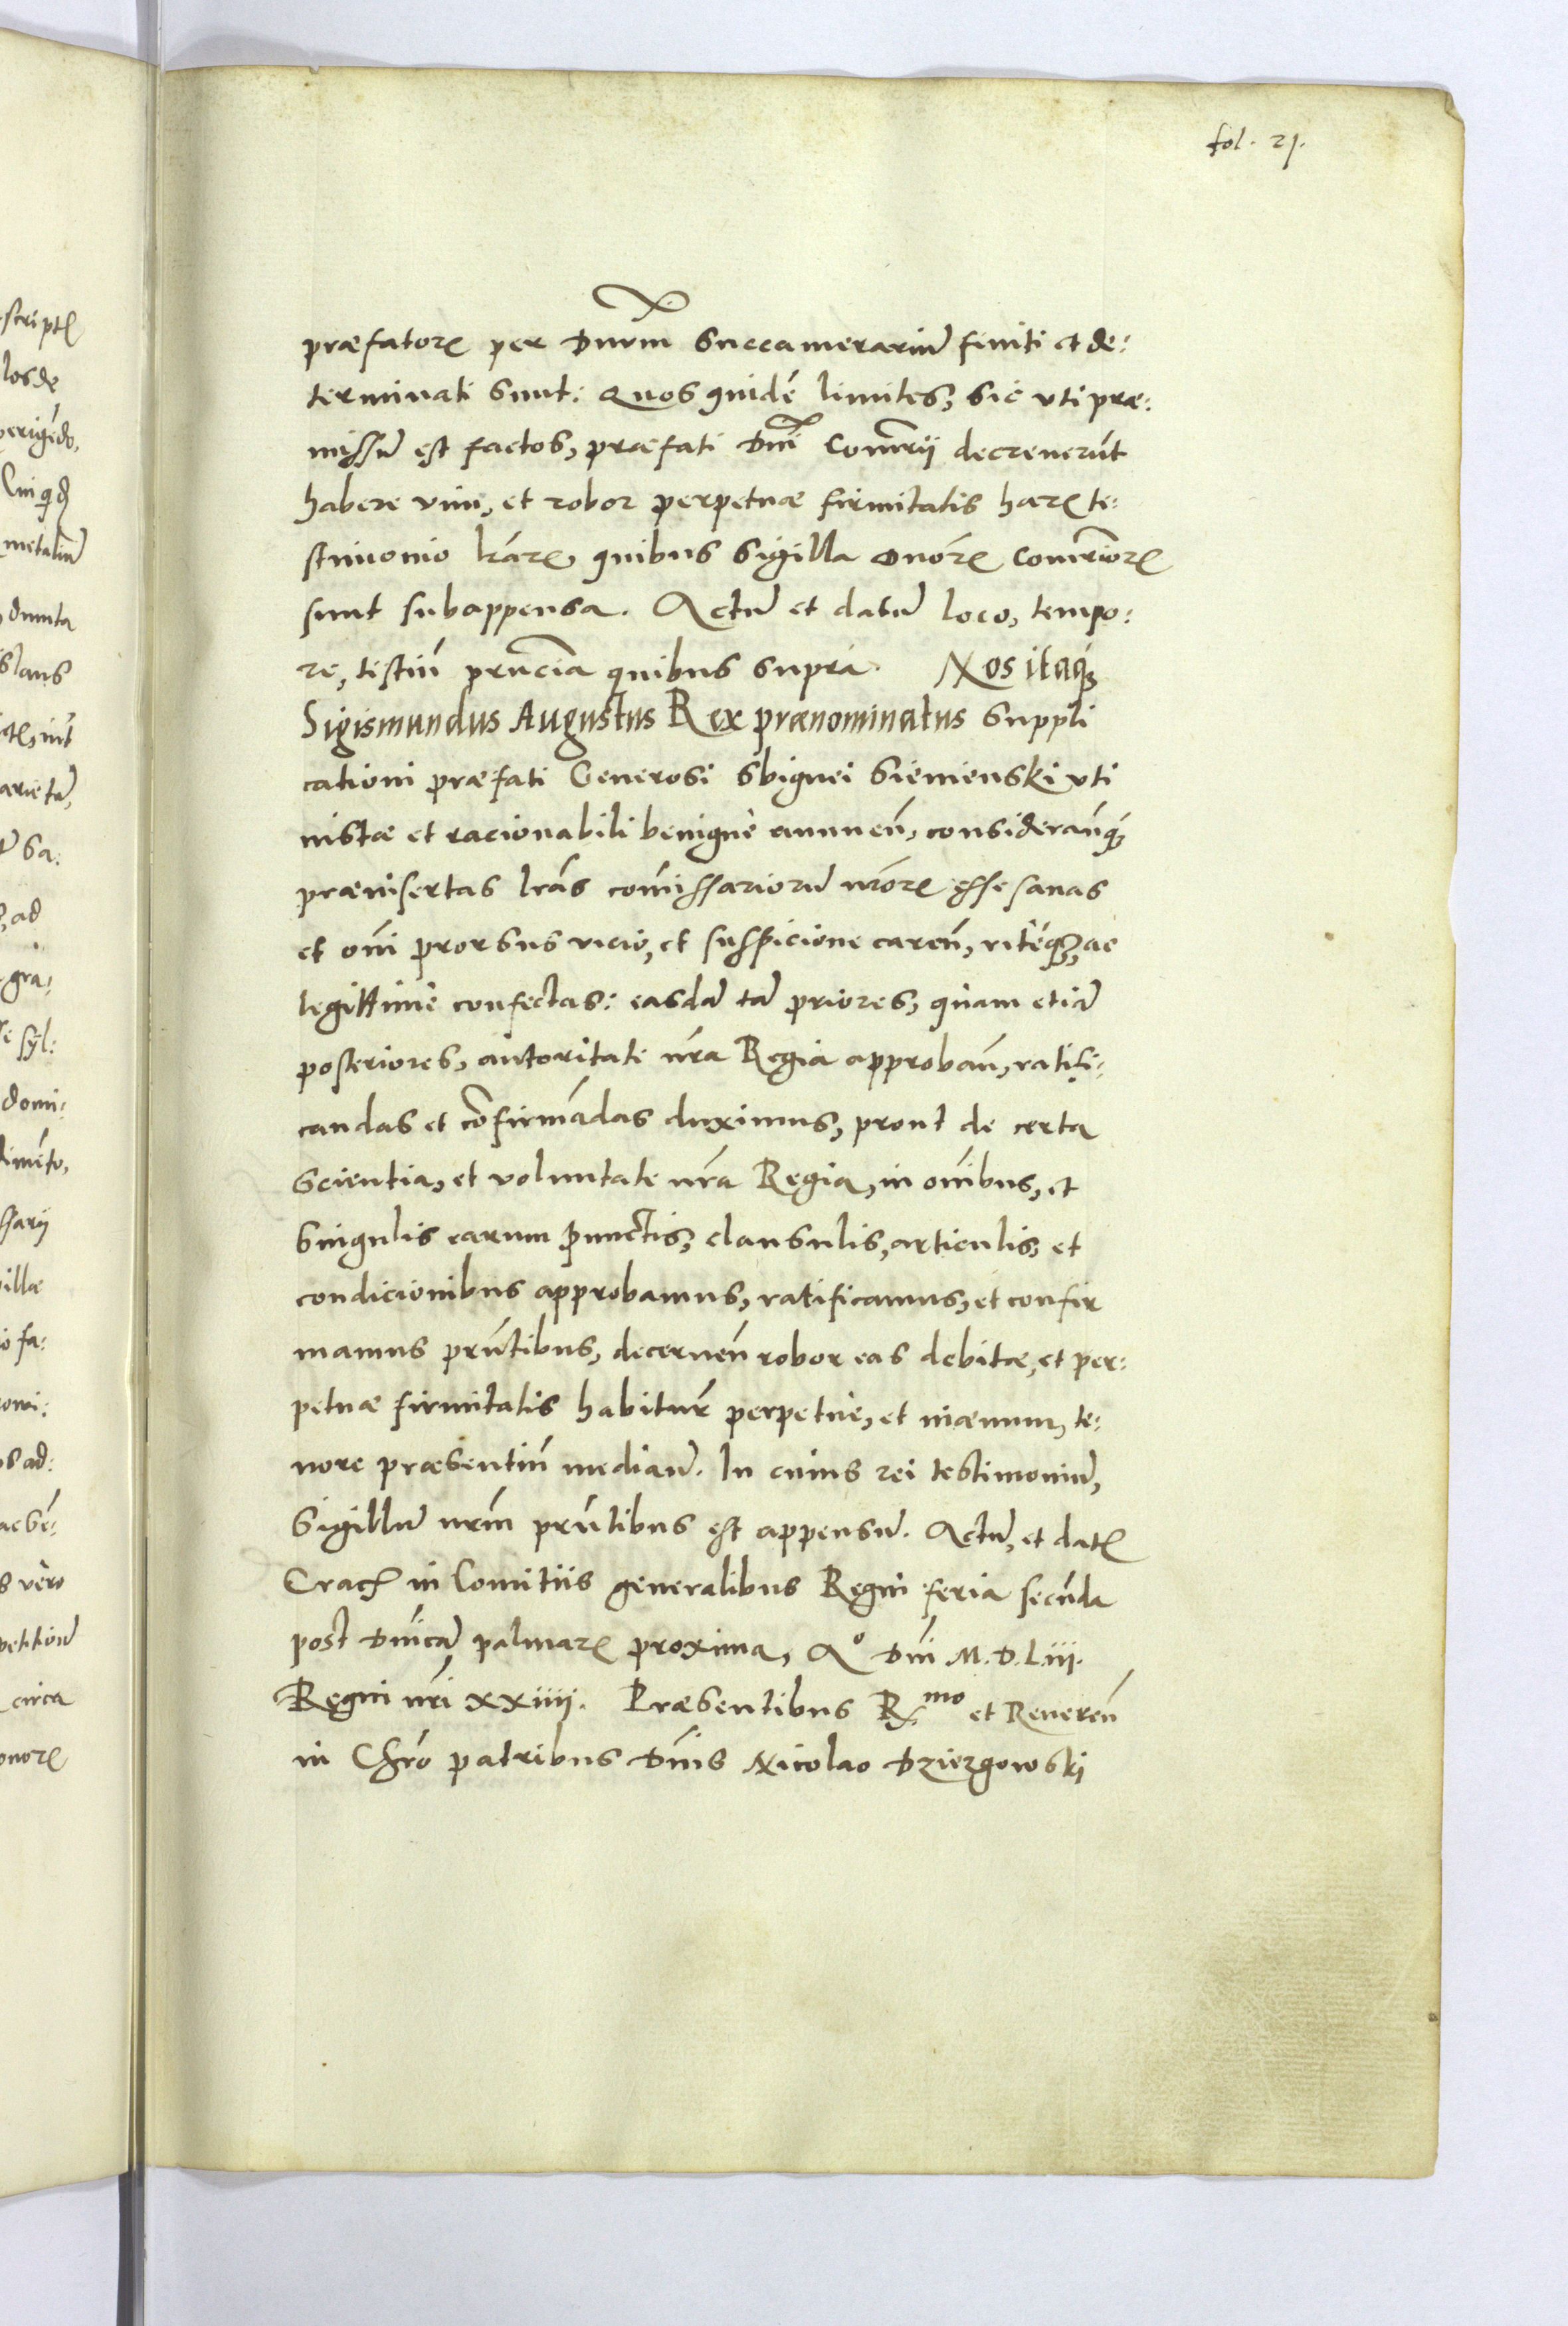 fol. 21.
præfatoꝝ per Dnum Succamerariũ finiti et de:
terminati sunt: Quos quidẽ limites, sic uti præ:
missũ est factos, præfati Dni Comrii decreuerũt
habere vim, et robor perpetuæ firmitatis haꝝ te:
stimonio lraꝝ, quibus sigilla Dnoꝝ Comrioꝝ
sunt subappensa. Actũ et datũ loco, tempo:
re, tistiũ prncia quibus supra. Nos itaq́ꝫ
Sigismundus Augustus Rex prænominatus suppli
cationi præfati Generosi Sbignei Siemienski uti
iustæ et racionabili benignè annueñ, considerañq́ꝫ
præinsertas lrãs comissariorũ nroꝝ esse sanas
et om̃i prorsus vicio, et suspicione careñ, ritéqꝫ, ac
legittimè confectas: easdẽ tã priores, quàm etiã
posteriores, autoritate nra Regia approbañ, ratifi:
candas et cõfirmãdas duximus, prout de certa
scientia, et voluntate nra Regia, in om̃ibus, et
singulis earum punctis, clausulis, articulis, et
condicionibus approbamus, ratificamus, et confir
mamus prñtibus, decerneñ robor eas debitæ, et per:
petuæ firmitatis habitur perpetuè, et inæuum, te:
nore præsentiũ mediañ. In cuius rei testimoniũ,
Sigillũ nrm prñtibus est appensũ. Actũ, et datꝫ
Crac in Comitiis generalibus Regni feria secũda
post Dnicã palmaꝝ proxima, Aº Dni M.D.L.iii.
Regni nri xxiiii. Præsentibus R.mo et Reuereñ
in Chro patribus Dnis Nicolao Dziergowski